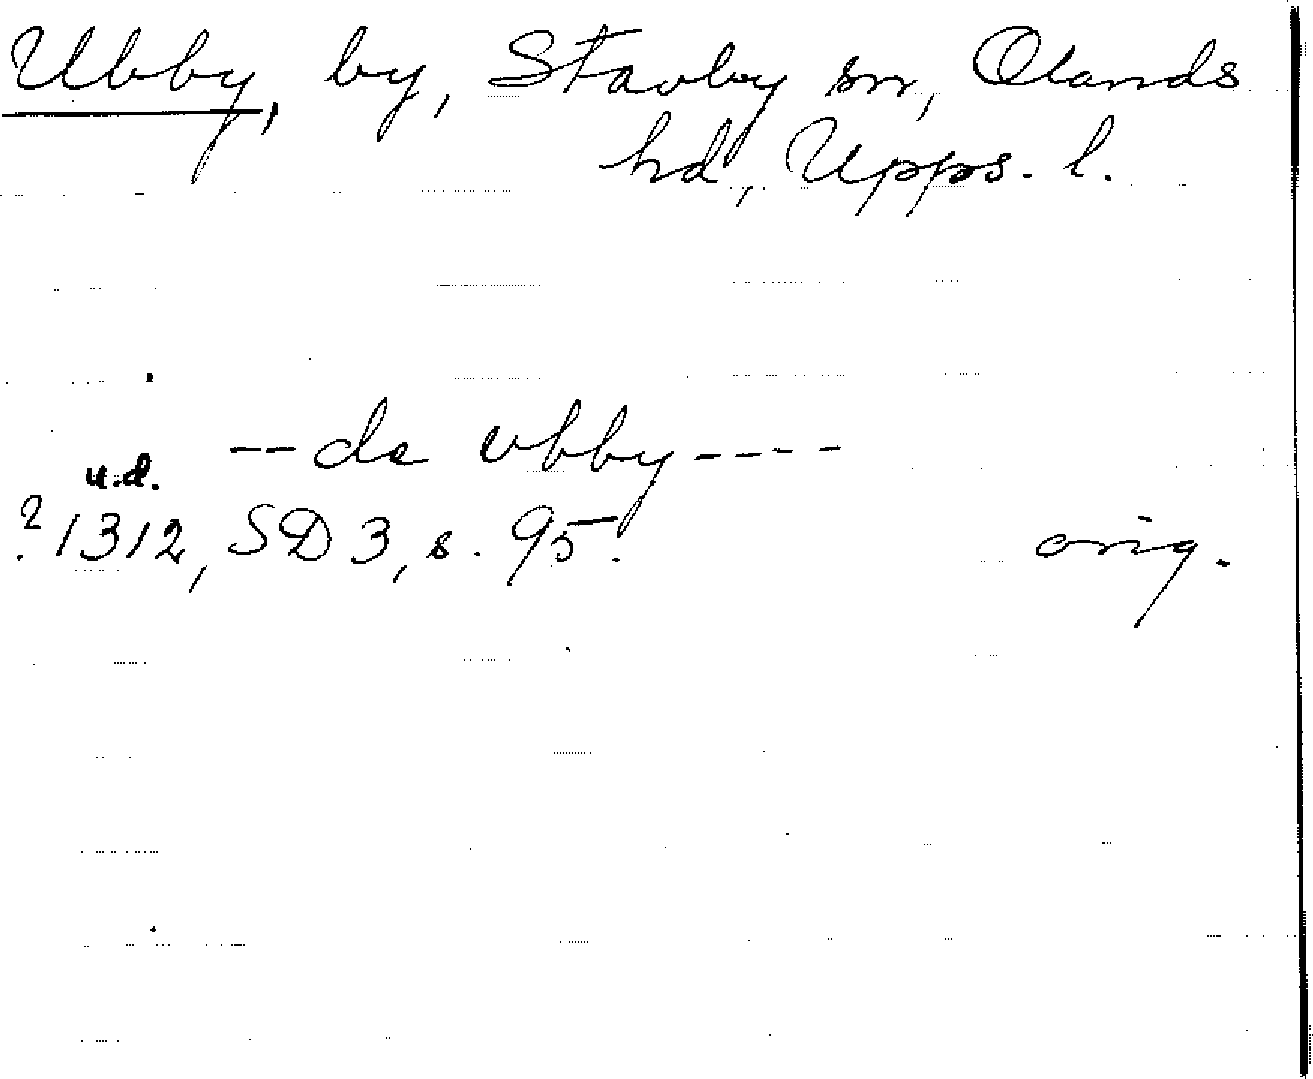 Ubby, by, Stavby sn, Olands
hd, Upps. l.
-- de ubby ----
u.d.
? 1312, SD 3, s. 95.
orig.